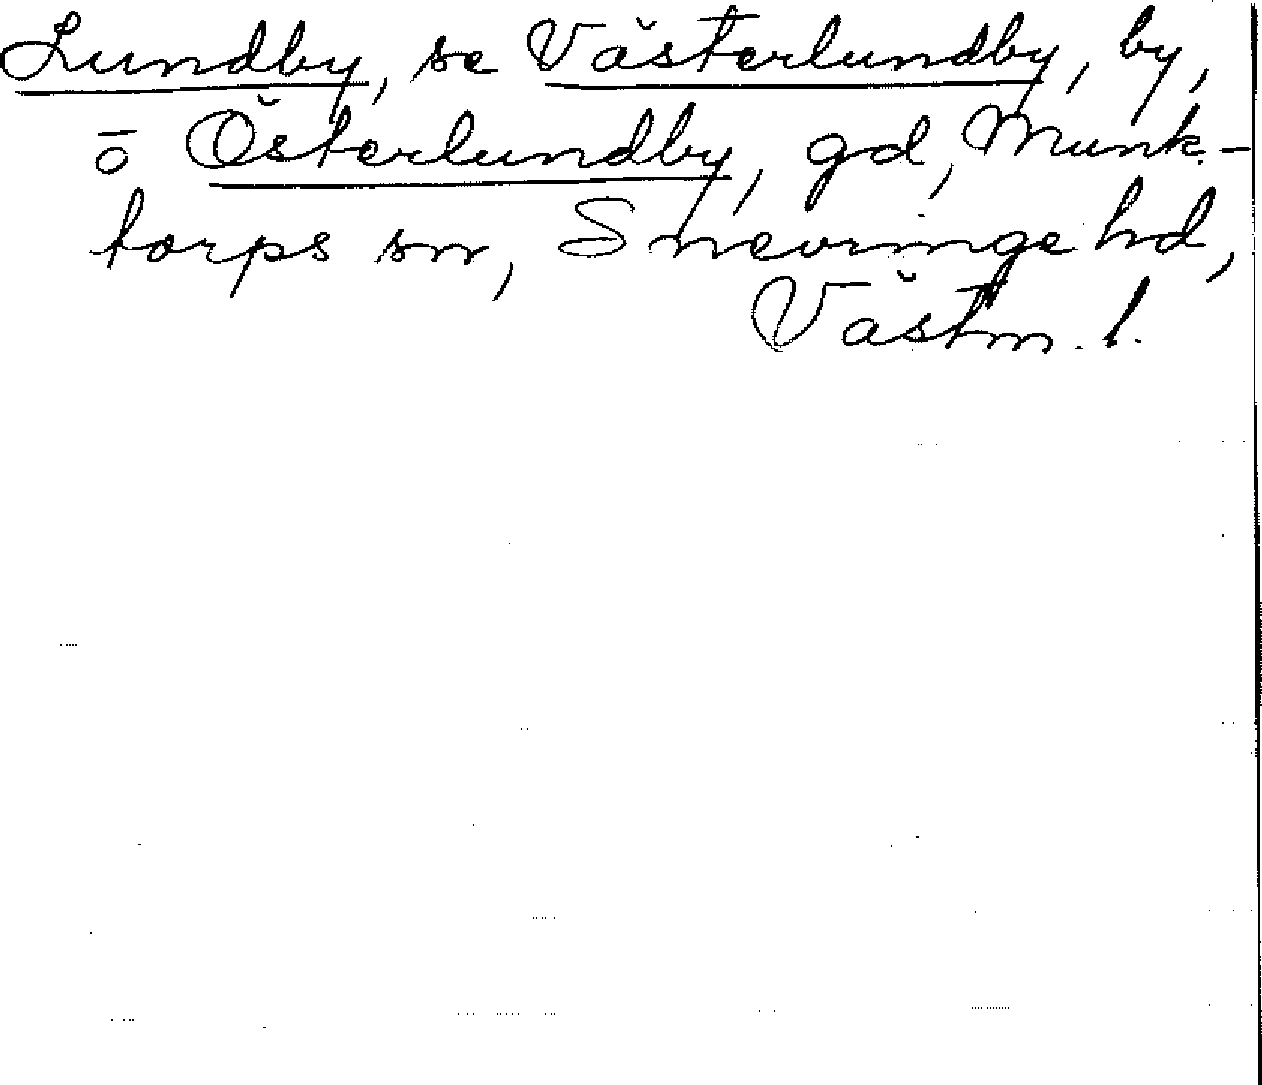 Lundby, se Västerlundby, by,
o Österlundby, gd, Munk-
torps sn, Snevringe hd,
Västm. l.